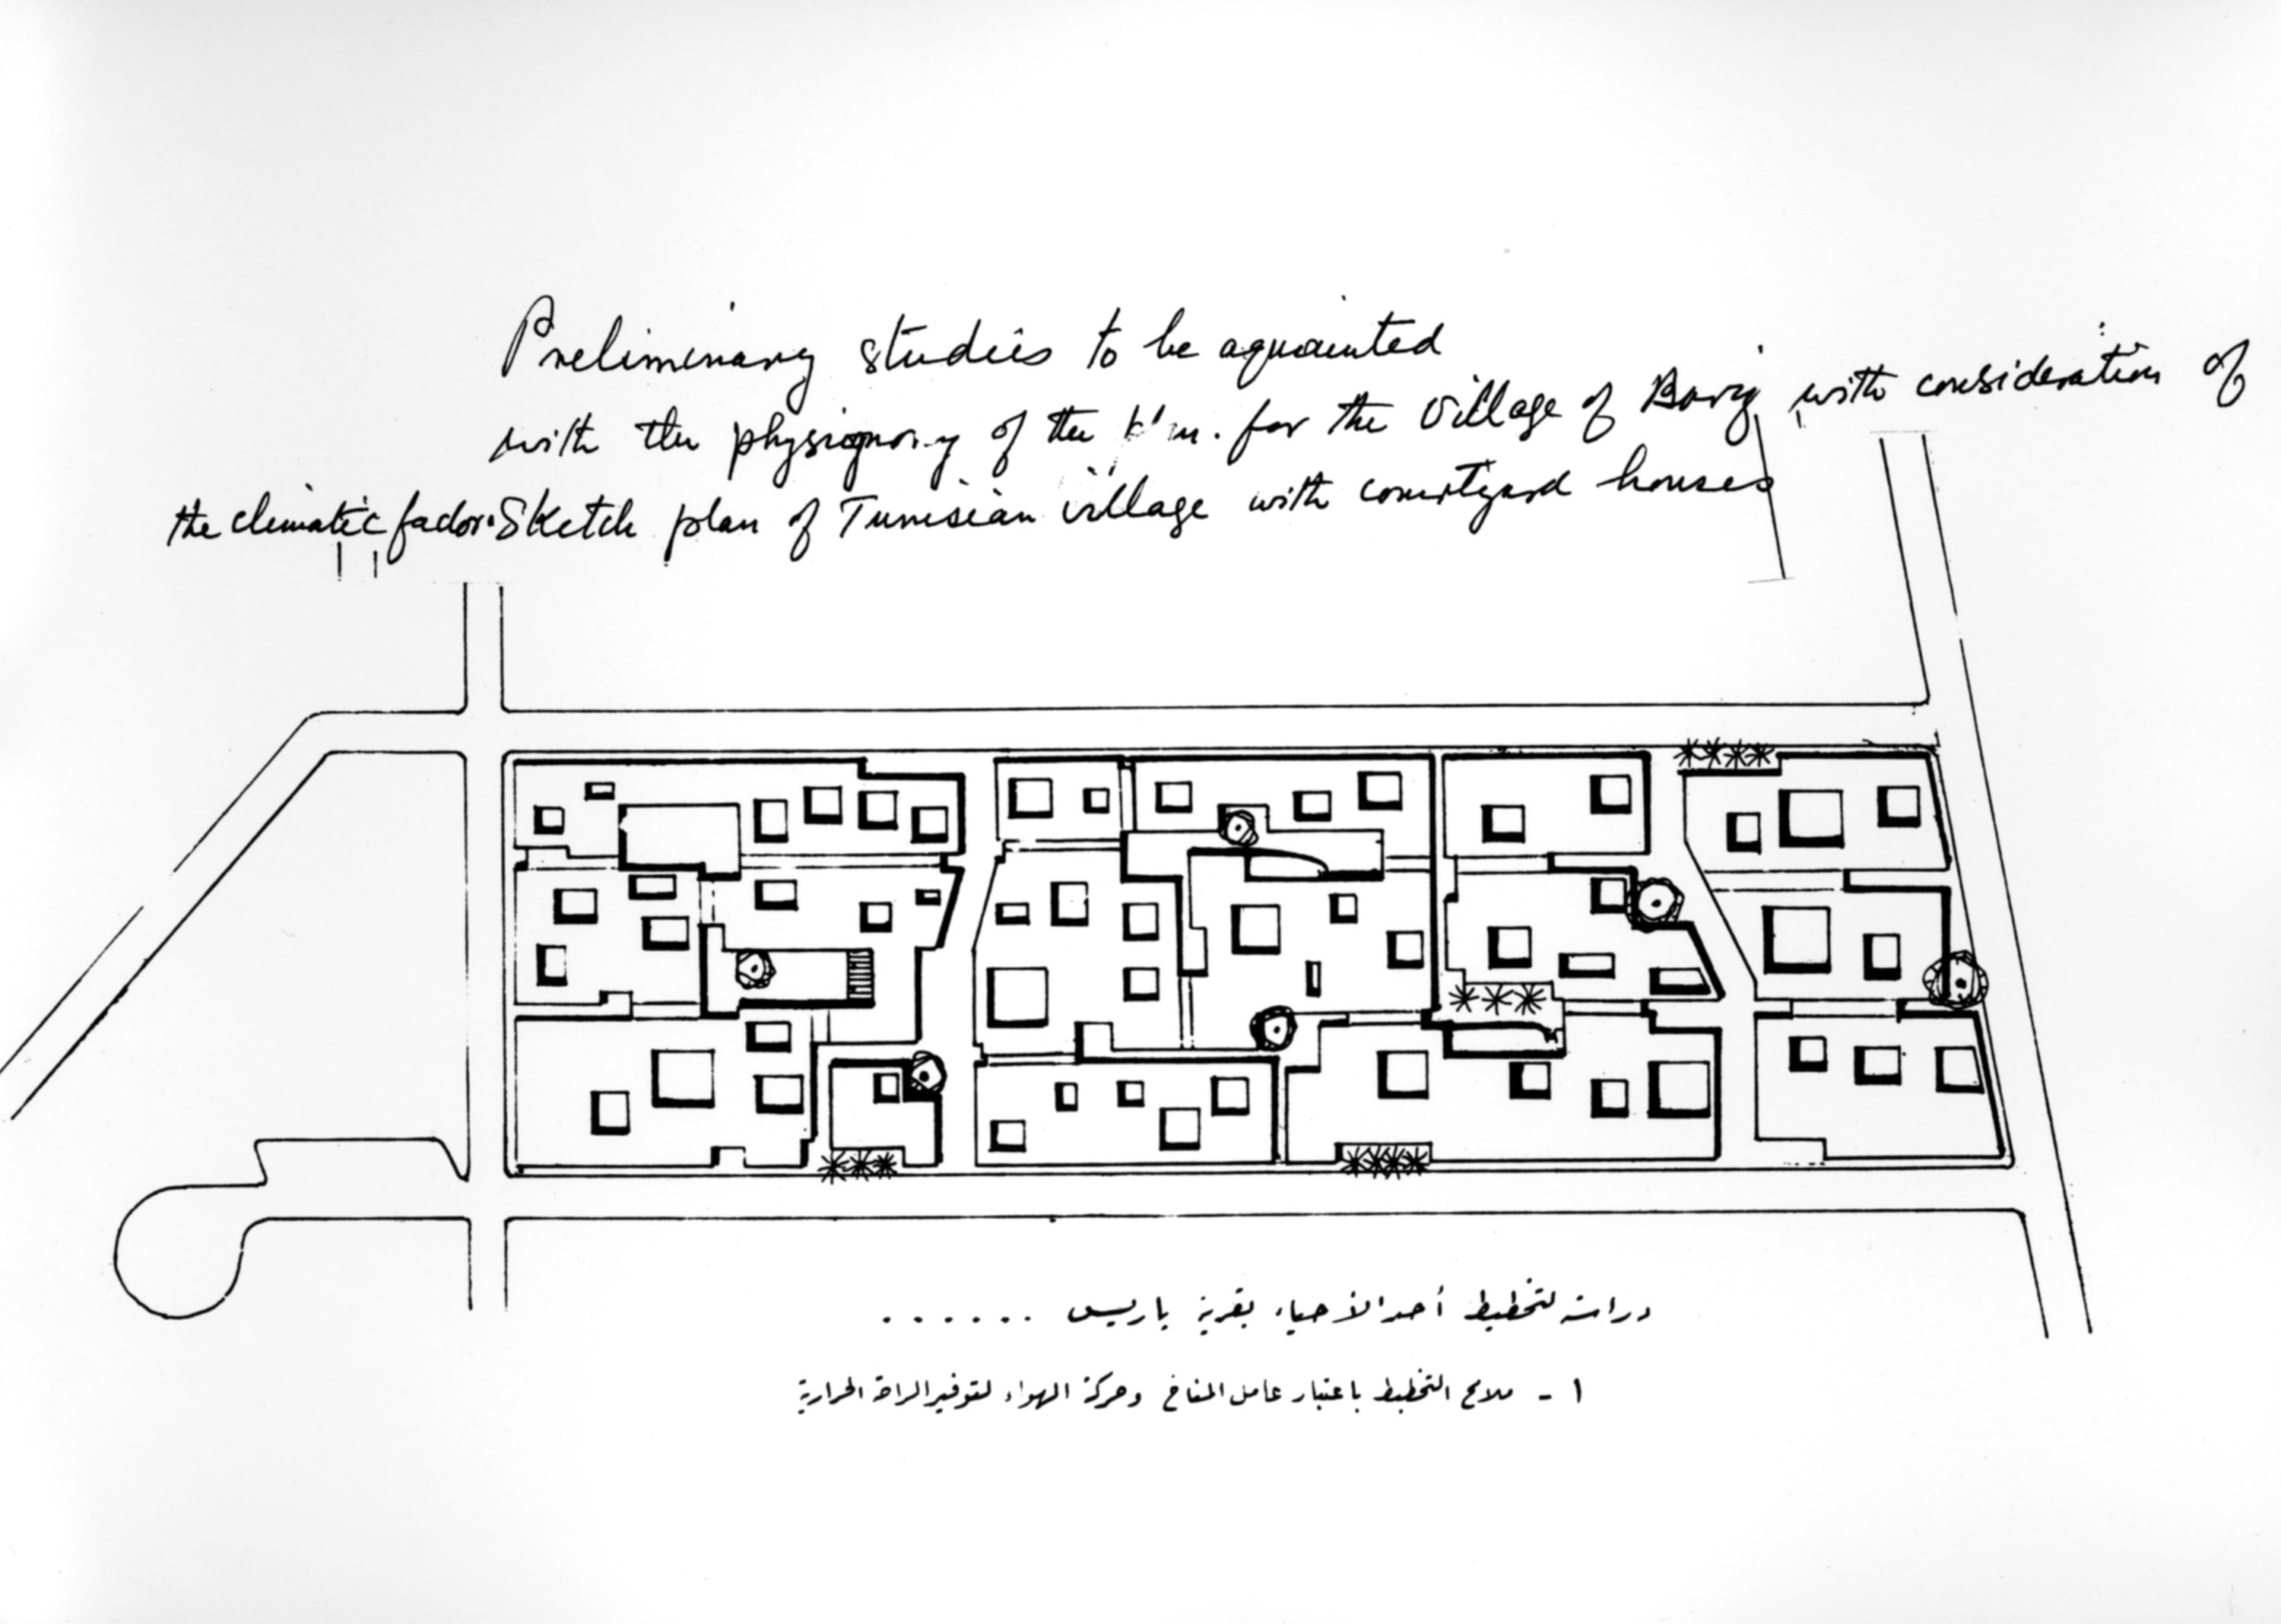 Preliminary studies to be aquainted
with the physiognomy of the for the village of with consideration of
the climatic factor. Sketch plan of Tunisian village with courtyard houses
دراسة لتخطيط أحد الأحياء بقرية باريس . . . . . .
١ - ملامح التخطيط باعتبار عامل المناخ وحركة الهواء لتوفير الراحة الحرارية